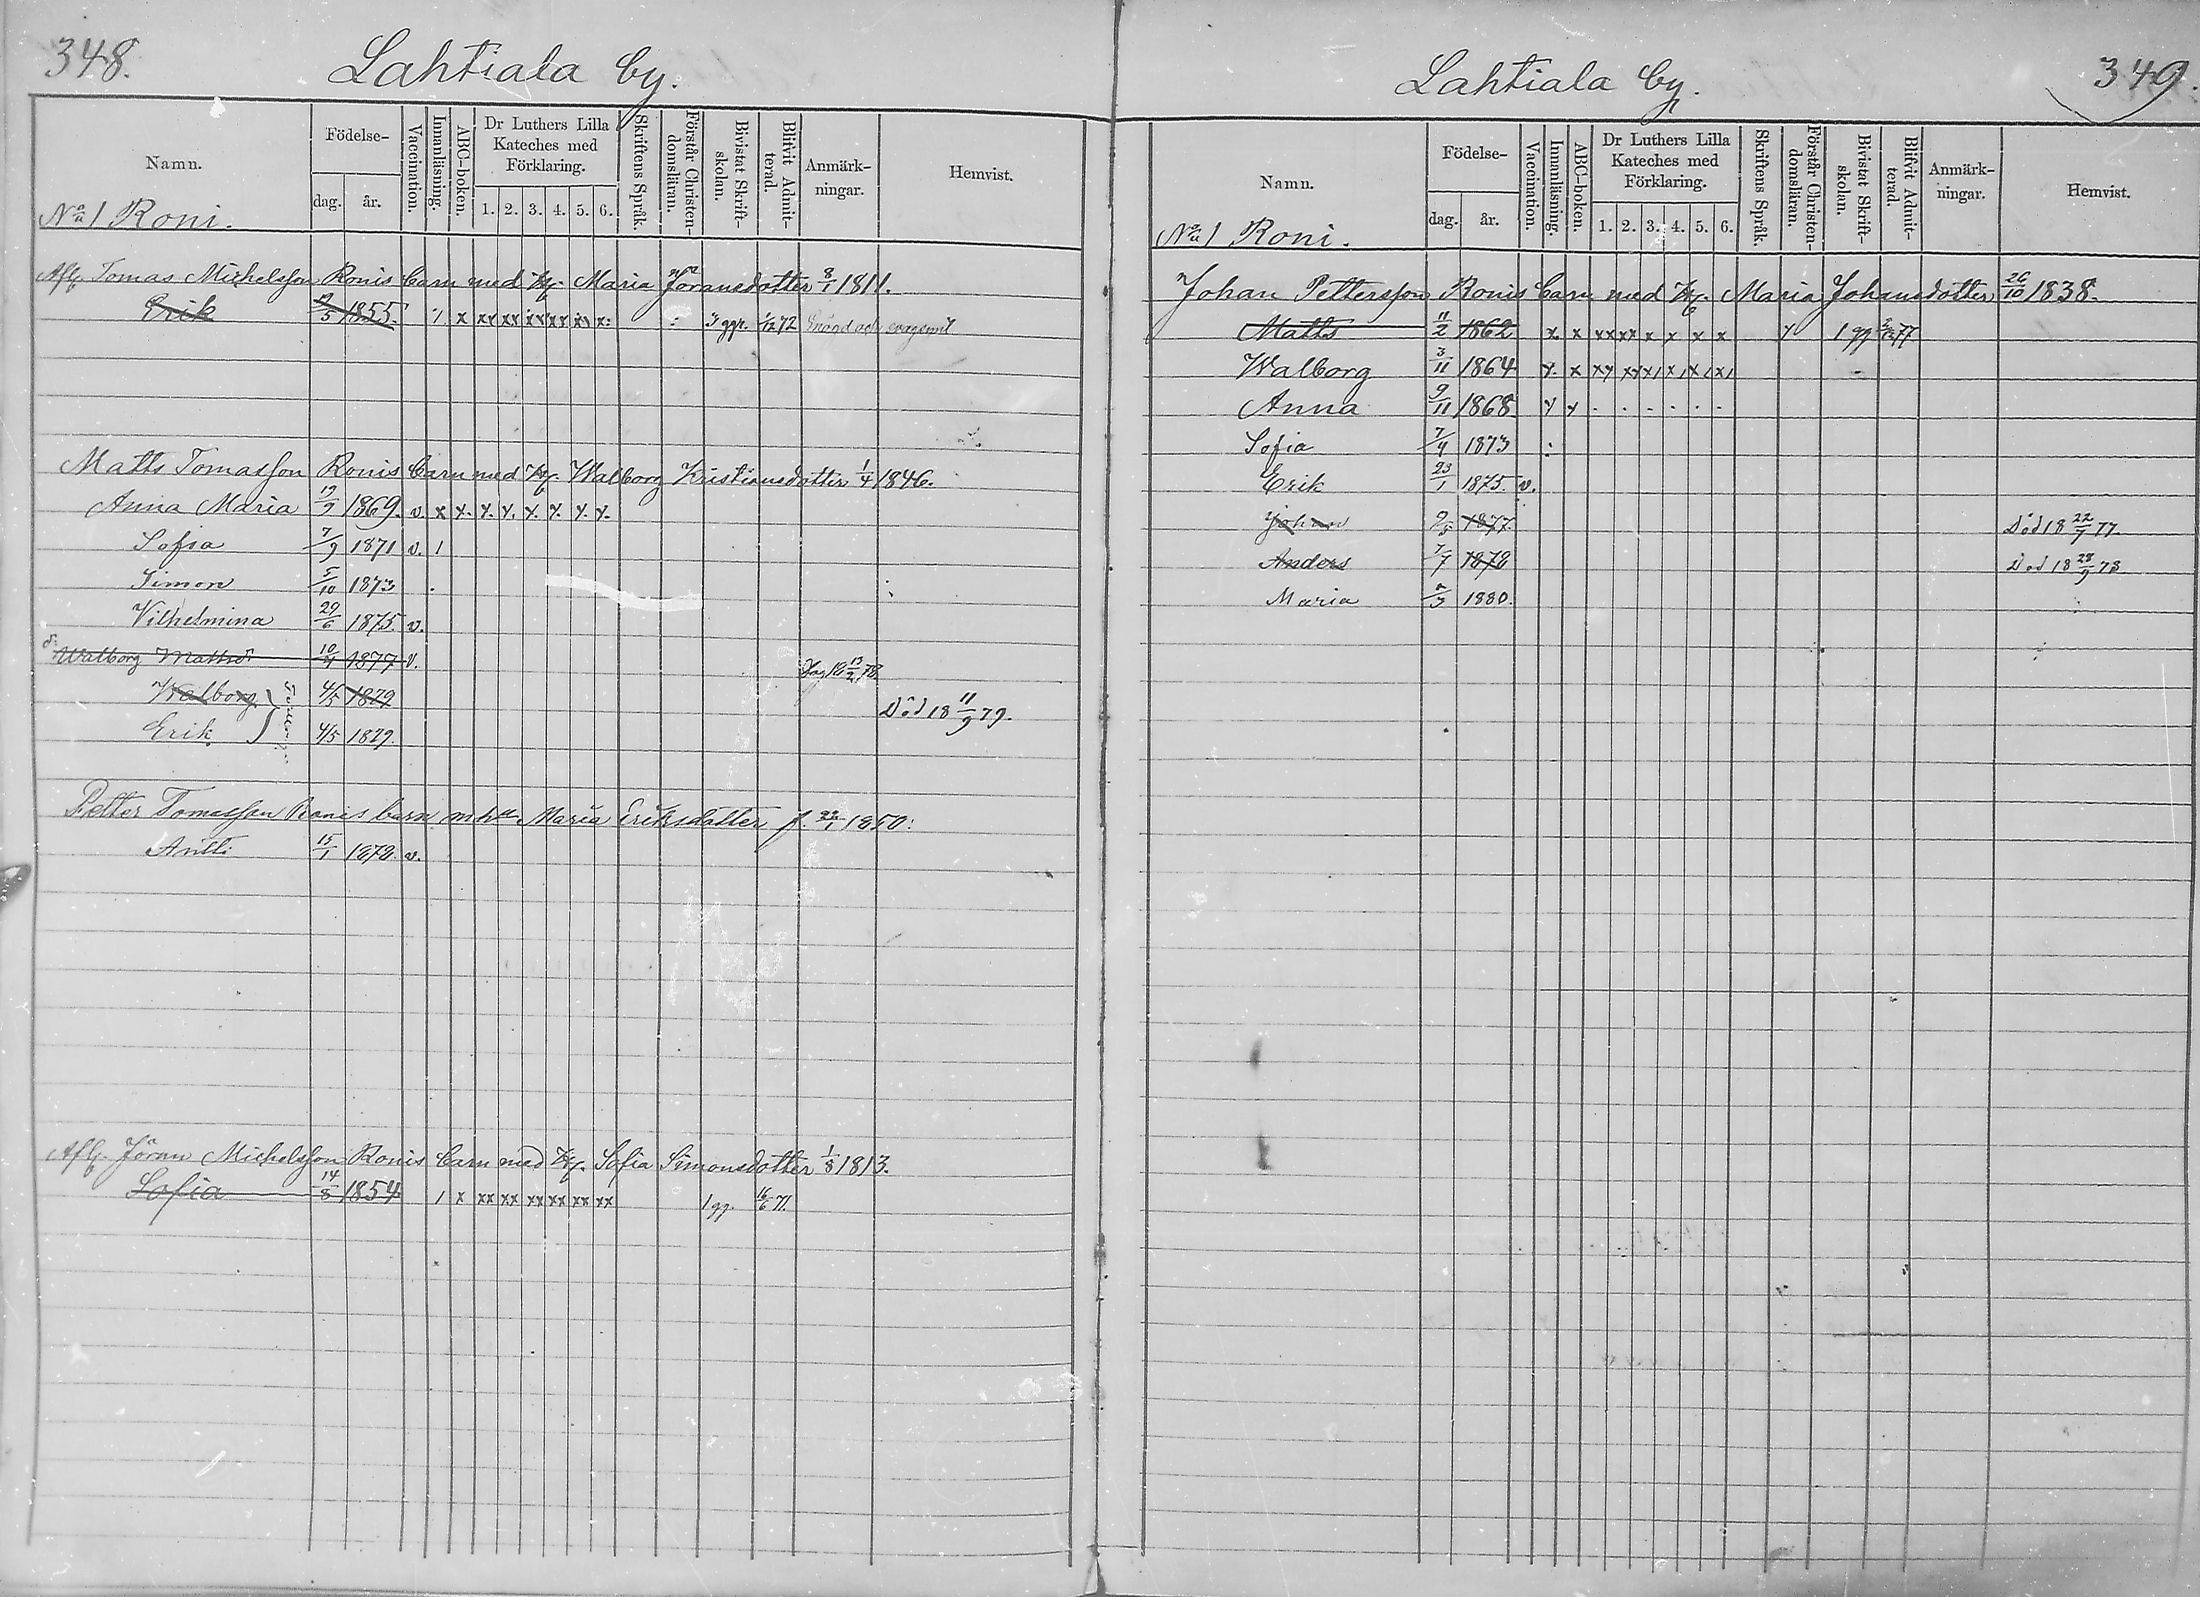 348.
Lahtiala by.
Namn.
Födelse-
dag. år.
Vaccination.
Innanläsning.
ABC-boken.
Dr Luthers Lilla Kateches med Förklaring.
1. 2. 3. 4. 5. 6.
Skriftens Språk.
Förstår Christendomsläran.
Bivistat Skriftskolan.
Blifvit Admitterad.
Anmärkningar.
Hemvist.
No 1 Roni.
Afl. Tomas Michelsson Ronis barn med H. Maria Göransdotter 8/1 1811.
Erik /5 1855. x xx xx xx xx xx x: 3 ggr. 1/12 72 Enögd och
Matts Tomasson Ronis barn med H. Walborg Kristiansdotter 1/4 1846.
Anna Maria 19/9 1869. v. x x. x. x. x. x. x. x.
Sofia 7/9 1871 v. 1
Simon 5/10 1873 .
Vilhelmina 29/6 1875. v.
Walborg Mattsdr 10/4 1877 v. 18 13/2 78.
Walborg 4/5 1879 Död 18 11/9 79.
Erik 4/5 1879.
Petter Tomasson Ronis barn m. h. Maria Eriksdotter f. 22/1 1850.
Antti 15/1 1878. v.
Afl. Jöran Michelsson Ronis barn med H. Sofia Simonsdotter 1/8 1813.
Sofia 14/8 1854 1 x xx xx xx xx xx xx 1 gg. 16/6 71.
Lahtiala by.
349.
Namn.
Födelse-
dag. år.
Vaccination.
Innanläsning.
ABC-boken.
Dr Luthers Lilla Kateches med Förklaring.
1. 2. 3. 4. 5. 6.
Skriftens Språk.
Förstår Christendomsläran.
Bivistat Skriftskolan.
Blifvit Admitterad.
Anmärkningar.
Hemvist.
No 1 Roni.
Johan Pettersson Ronis barn med H. Maria Johansdotter 26/10 1838.
Matts 11/2 1862 x x xx xx x x x x 1 gg 77
Walborg 3/11 1864 x x
Anna 9/11 1868
Sofia 7/4 1873 :
Erik 23/1 1875. v.
Johan 1877 Död 18 22/7 77.
Anders 7/7 1878 Död 18 28/9 78.
Maria /3 1880.